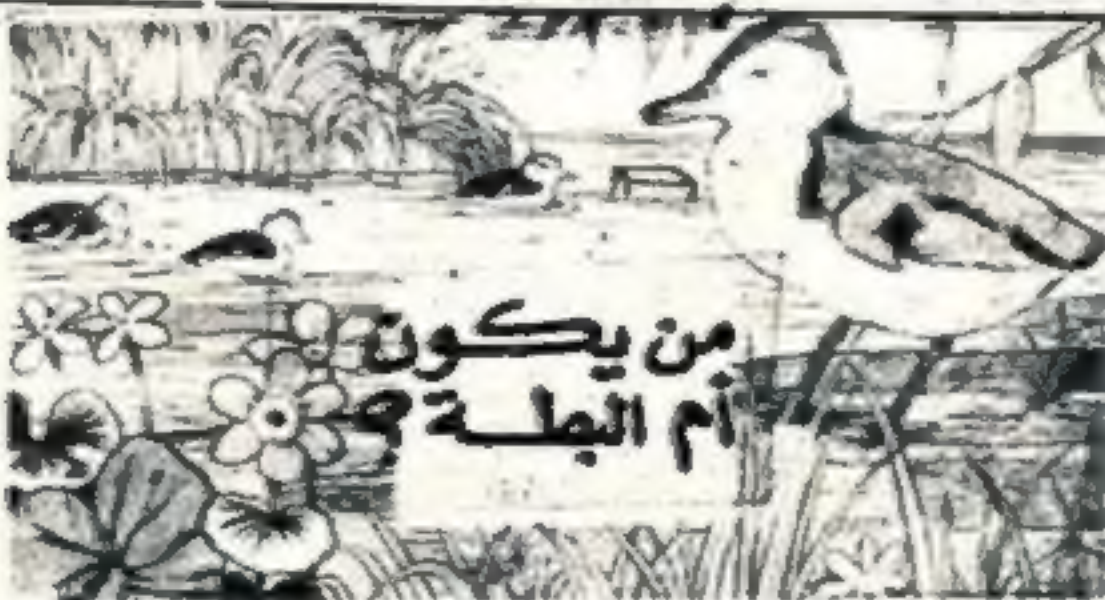 من يكون
أم البطة ؟